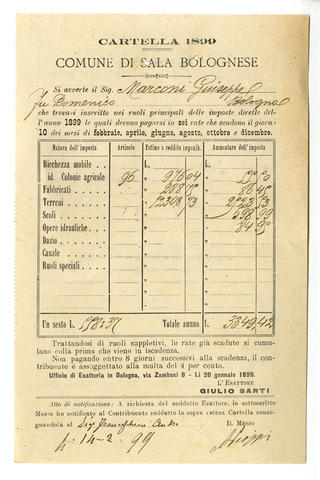 CARTELLA 1899
COMUNE DI SALA BOLOGNESE
Si avverte il Sig. Marconi Giuseppe
fu Domenico Bologna
che trovasi inscritto nei ruoli principali delle imposte dirette del-
l'anno 1899 le quali devono pagarsi in sei rate che scadono il giorno
10 dei mesi di febbraio, aprile, giugno, agosto, ottobre e dicembre.
Natura dell'imposta Articolo Estimo o reddito imponib. Ammontare dell'imposta
Ricchezza mobile L. L.
id. Colonie agricole 96 976 04
Fabbricati 288 75 86 45
Terreni 12308 73
Scoli 598 99
Opere idrauliche
Dazio
Canale
Ruoli speciali
Un sesto L. 558:37 Totale annuo L. 3349,42
Trattandosi di ruoli suppletivi, le rate già scadute si cumu-
lano colla prima che viene in iscadenza.
Non pagando entro 8 giorni successivi alla scadenza, il con-
tribuente è assoggettato alla multa del 4 per cento.
Ufficio di Esattoria in Bologna, via Zamboni 8 - Lì 20 gennaio 1899.
L'ESATTORE
GIULIO SANTI
Atto di notificazione: A richiesta del suddetto Esattore, io sottoscritto
Messo ho notificato al Contribuente suddetto la sopra istesa Cartella conse-
gnandola al Sig.
IL MESSO
lì 14-2-99